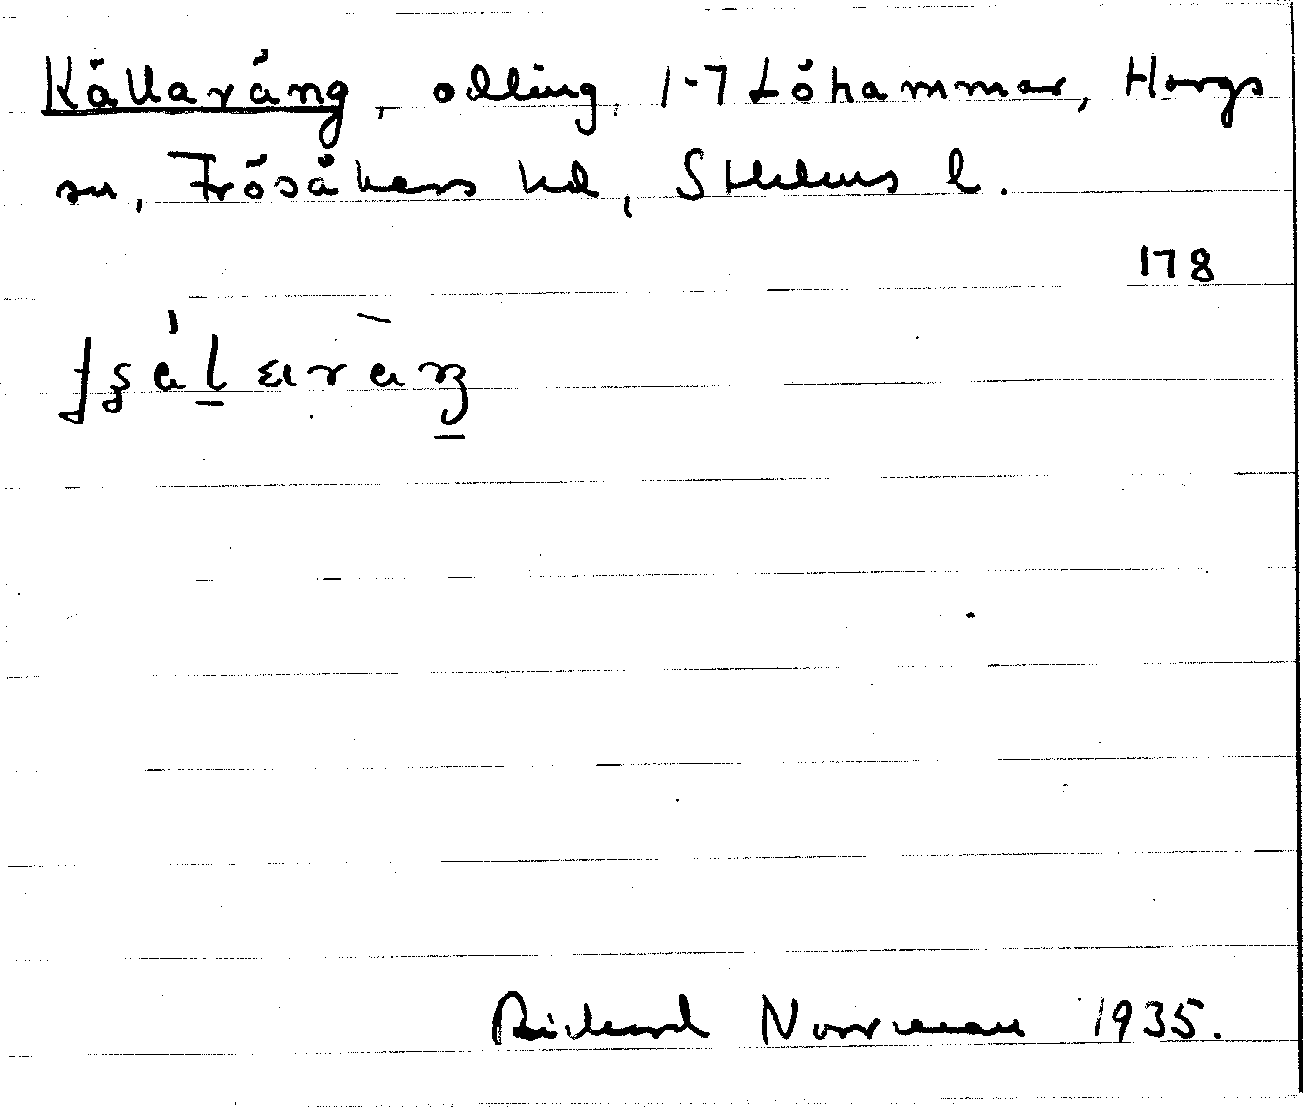 Källaräng, odling, 1-7 Löhammar, Hargs
sn, Frösåkers hd, Sthlms l.
178
Richard Norrman 1935.